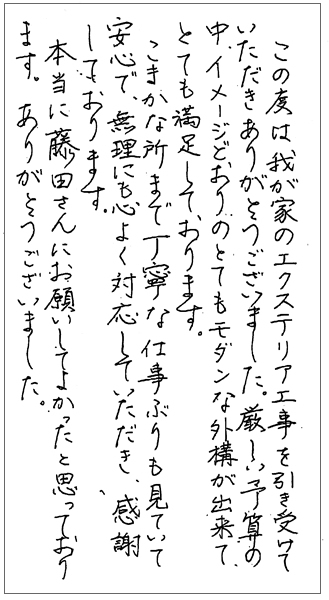 この度は我が家のエクステリア工事を引き受けて
いただきありがとうございました。厳しい予算の
中、イメージどおりのとてもモダンな外構が出来て、
とても満足しております。
こまかな所まで丁寧な仕事ぶりも見ていて
安心で、無理にも心よく対応していただき、感謝
しております。
本当に藤田さんにお願いしてよかったと思っており
ます。ありがとうございました。